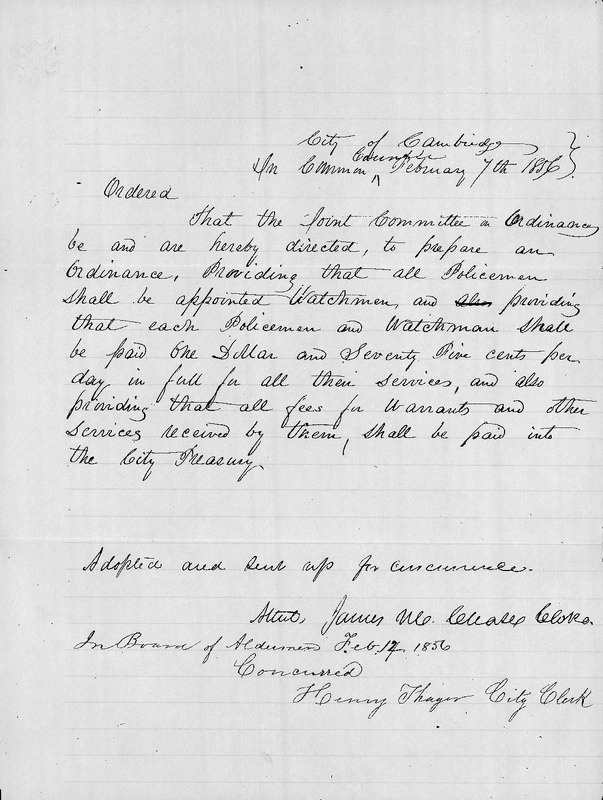 City of Cambridge
In Common Council February 7th 1856
Ordered
That the Joint Committee on Ordinances
be and are hereby directed, to prepare an
Ordinance, Providing that all Policemen
shall be appointed Watchmen, and also providing
that each Policemen and Watchman shall
be paid One Dollar and Seventy Five cents per
day in full for all their services, and also
providing that all fees for Warrants and other
services received by them, shall be paid into
the City Treasury.
Adopted and sent up for concurrence.
Attest, James M. Chase Clerk.
In Board of Aldermen Feb. 1856
Concurred
Henry Thayer City Clerk